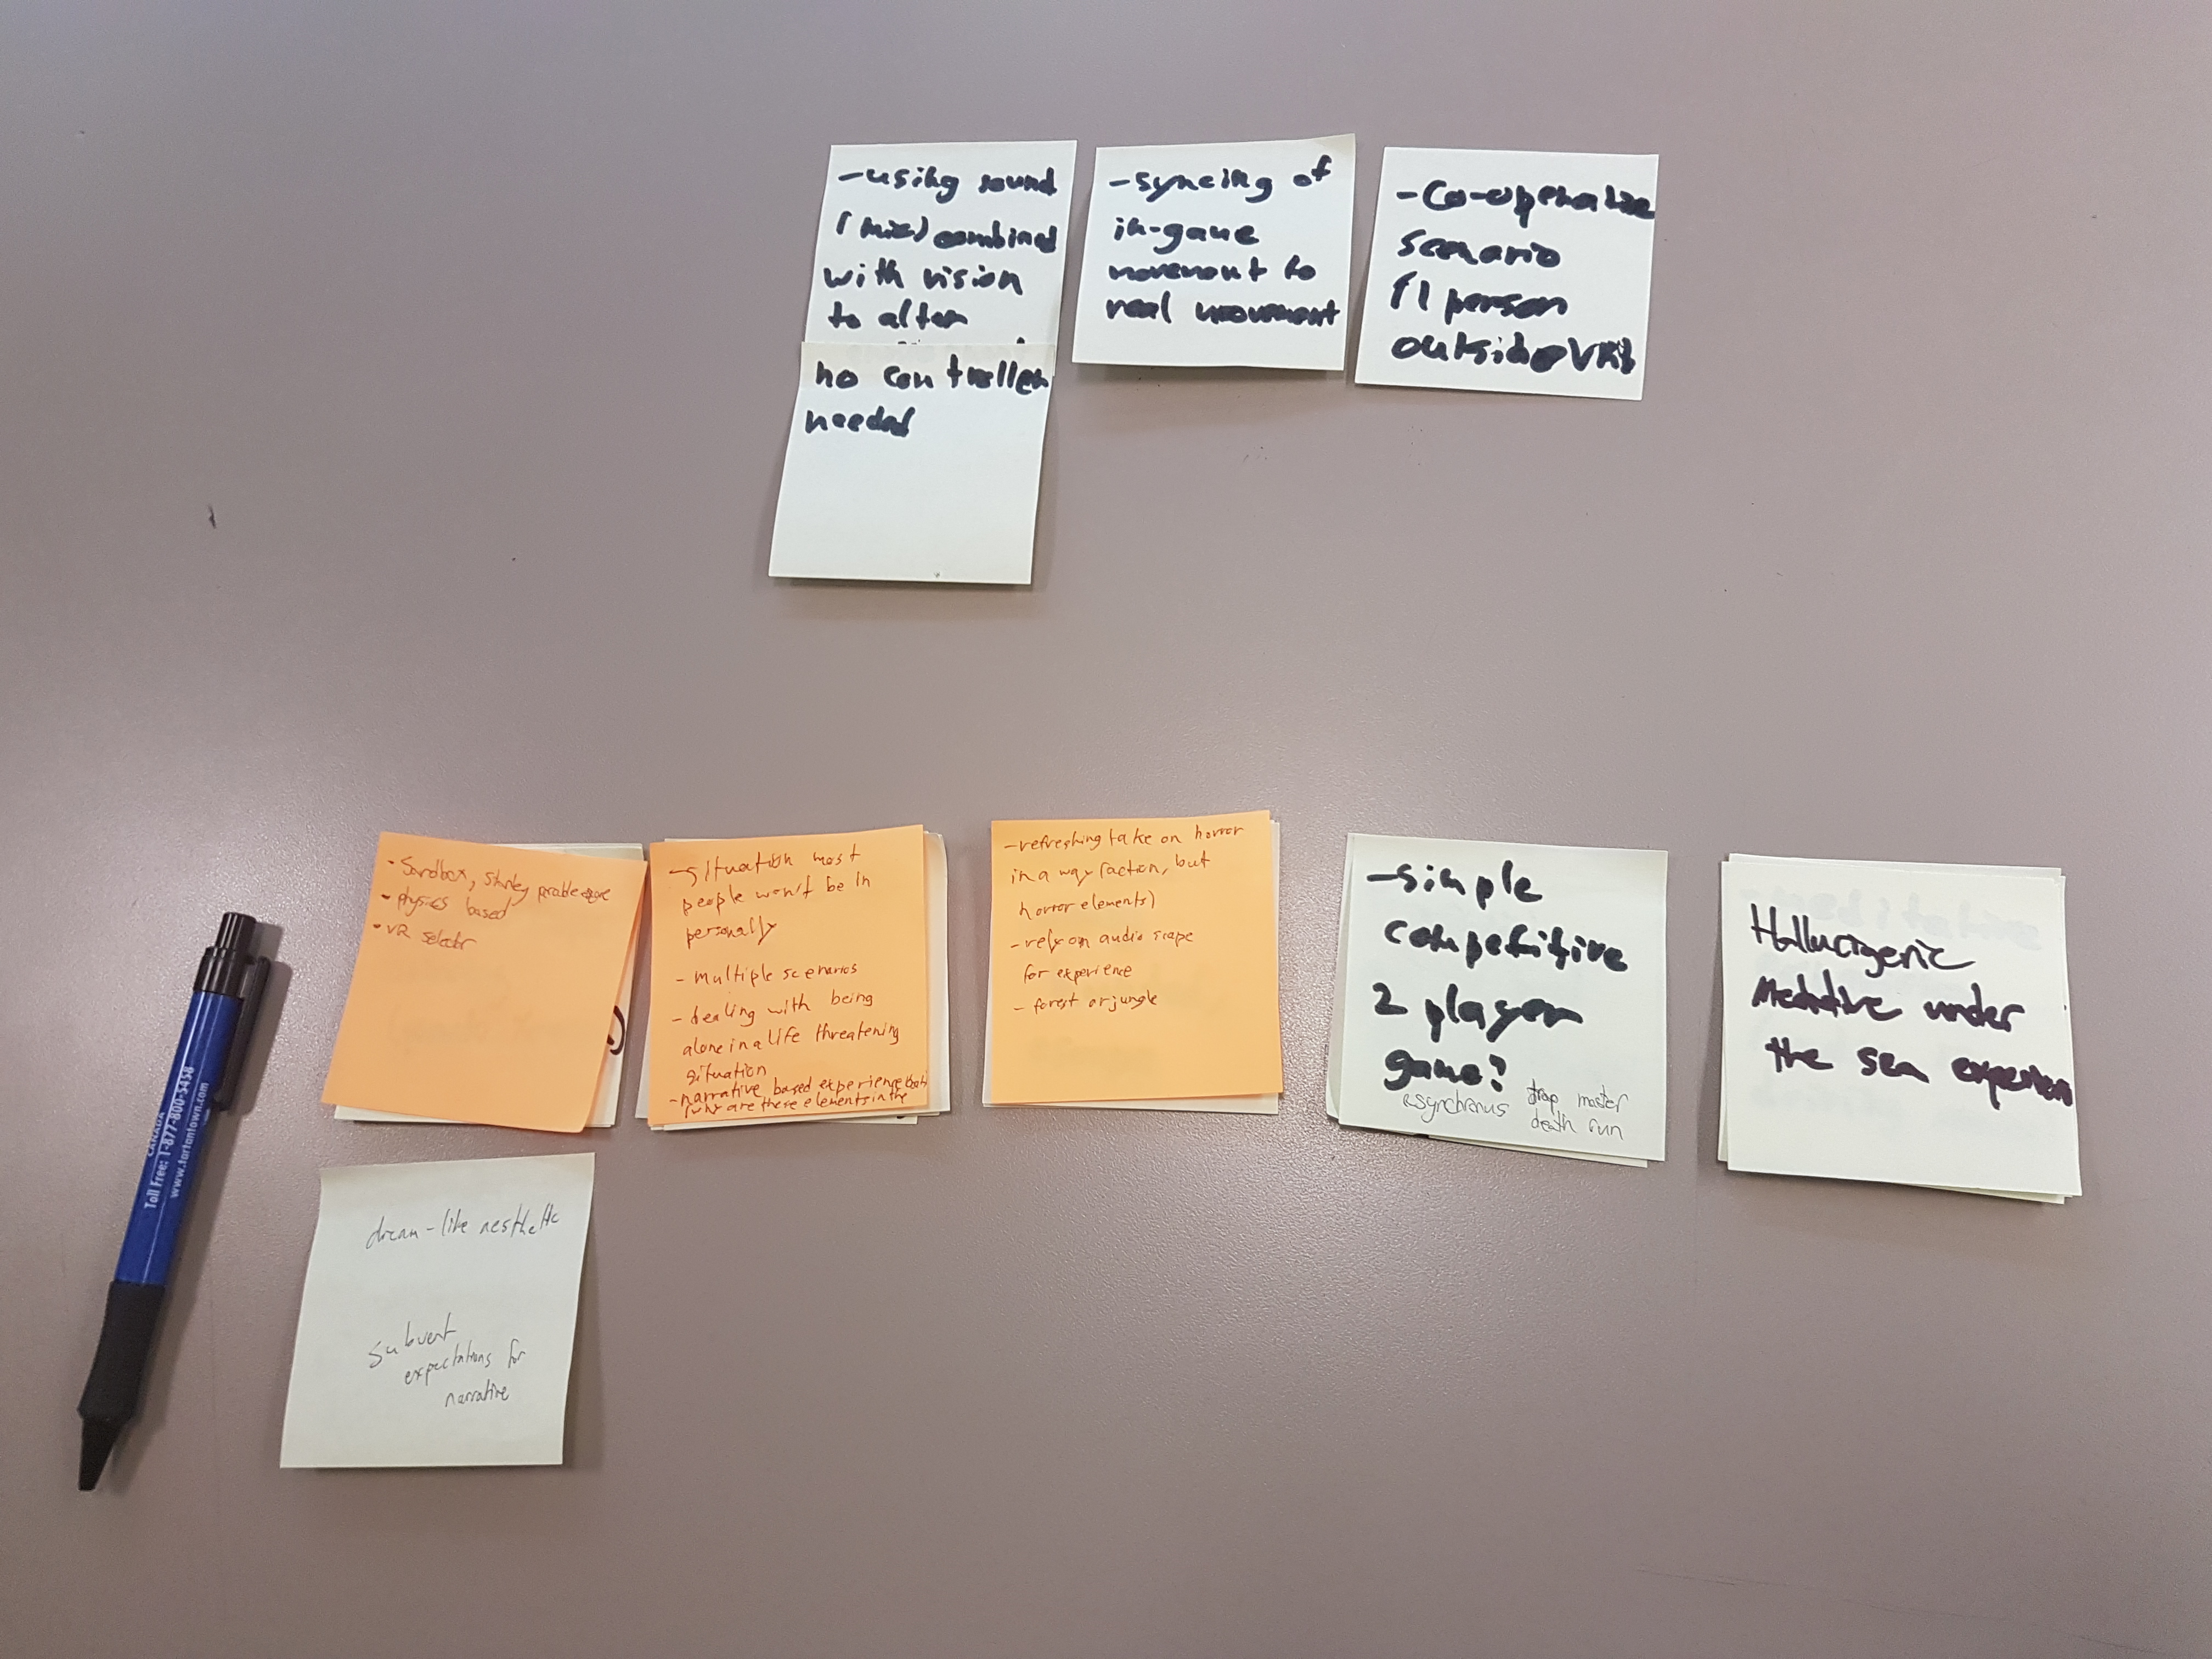 -using sound
(mic) combined
with vision
to alter
no controller
needed
-syncing of
in-game
movement to
real movement
-Co-operative
scenario
(1 person
outside VR)
• Sandbox, Stanley parable esque
• physics based
• VR selector
- situation most
people won't be in
personally
- multiple scenarios
- dealing with being
alone in a life threatening
situation
- narrative based experience
are these elements in the
- refreshing take on horror
in a way (action, but
horror elements)
- rely on audio scape
for experience
- forest or jungle
-simple
competitive
2 player
game?
asynchronus
trap master
death run
Hallucigenic
Meditative under
the sea experien
dream-like aesthetic
subvert
expectations for
narrative
CANADA
Toll Free: 1-877-800-5458
www.tartantown.com